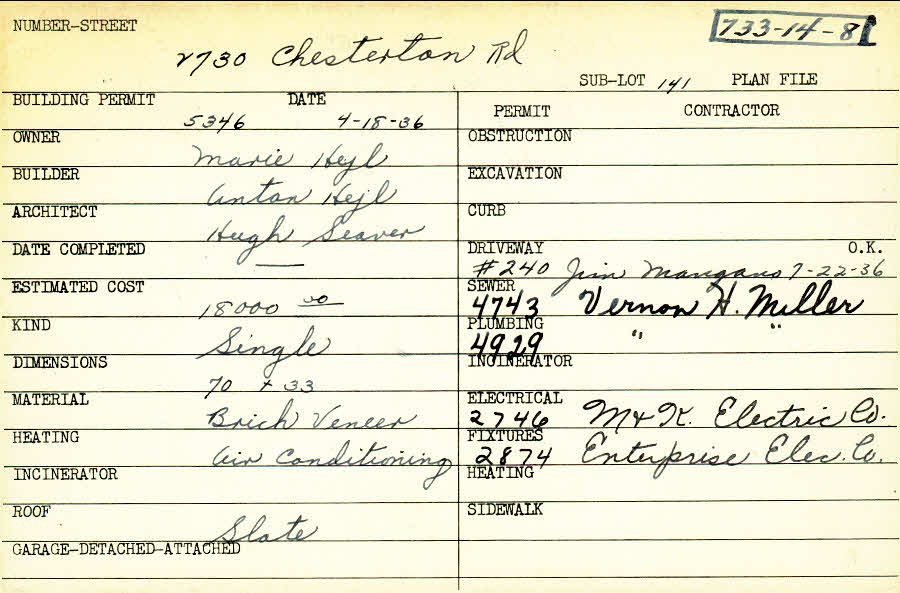 NUMBER-STREET
733-14-81
2730 Chesterton Rd
SUB-LOT 141 PLAN FILE
BUILDING PERMIT DATE
5346 4-18-36
OWNER
Marie Hejl
BUILDER
Anton Hejl
ARCHITECT
Hugh Seaver
DATE COMPLETED
—
ESTIMATED COST
18000 00
KIND
Single
DIMENSIONS
70 + 33
MATERIAL
Brick Veneer
HEATING
Air Conditioning
INCINERATOR
ROOF
Slate
GARAGE-DETACHED-ATTACHED
PERMIT CONTRACTOR
OBSTRUCTION
EXCAVATION
CURB
DRIVEWAY O.K.
#240 Jim Mangano 7-22-36
SEWER
4743 Vernon H. Miller
PLUMBING
4929 " "
INCINERATOR
ELECTRICAL
2746 M & K. Electric Co.
FIXTURES
2874 Enterprise Elec. Co.
HEATING
SIDEWALK